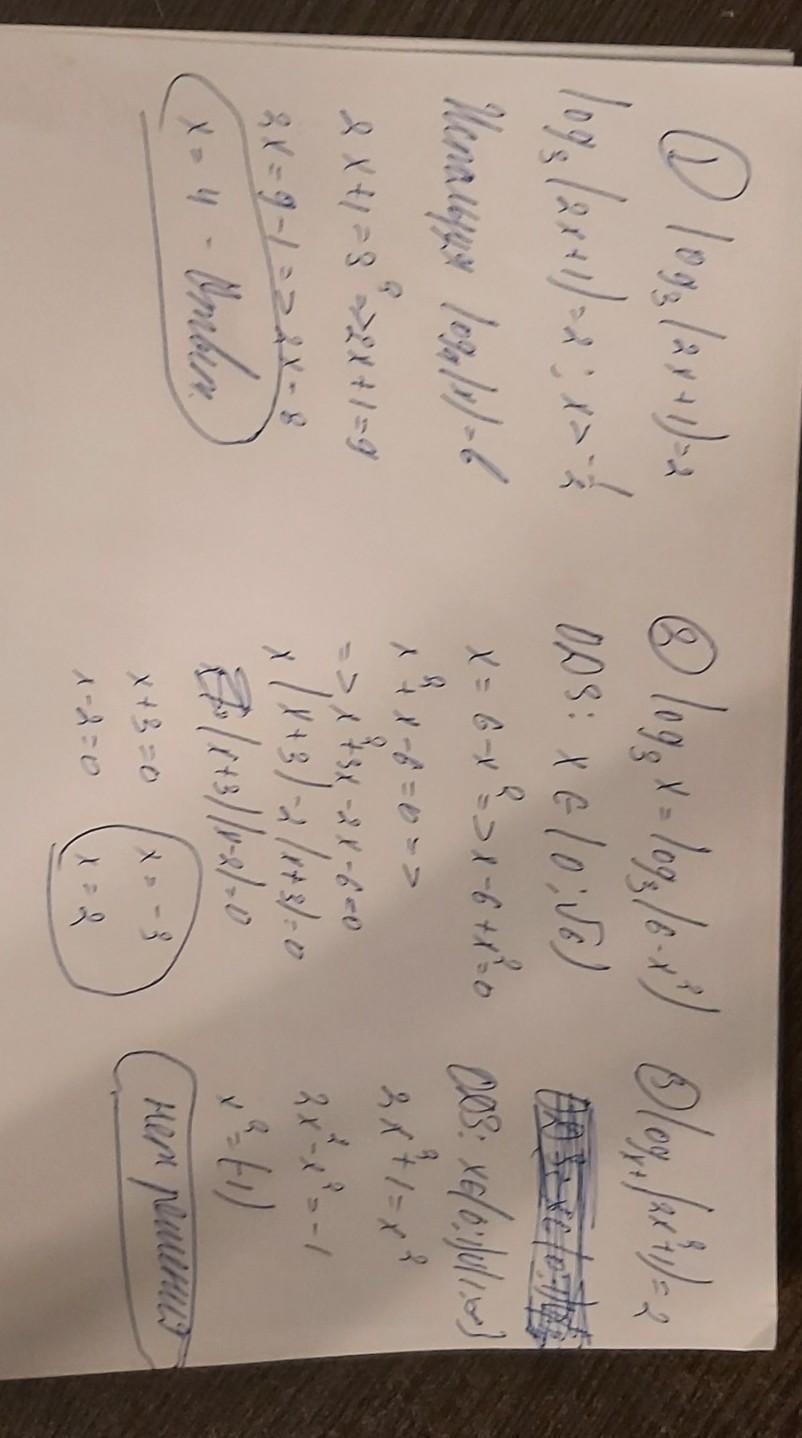 ① log₃(2x+1)=2
log₃(2x+1)=2; x>-1/2
Используя log₂(x)=b
2x+1=3²=>2x+1=9
2x=9-1=>2x=8
x=4 - Ответ.
② log₃x=log₃(6-x²)
ОДЗ: x∈(0;√6)
x=6-x²=>x-6+x²=0
x²+x-6=0=>
=>x²+3x-2x-6=0
x(x+3)-2(x+3)=0
(x+3)(x-2)=0
x+3=0 x=-3
x-2=0 x=2
③ logₓ(2x²+1)=2
ОДЗ: x∈(0;1)∪(1;∞)
2x²+1=x²
2x²-x²=-1
x²=(-1)
нет решения